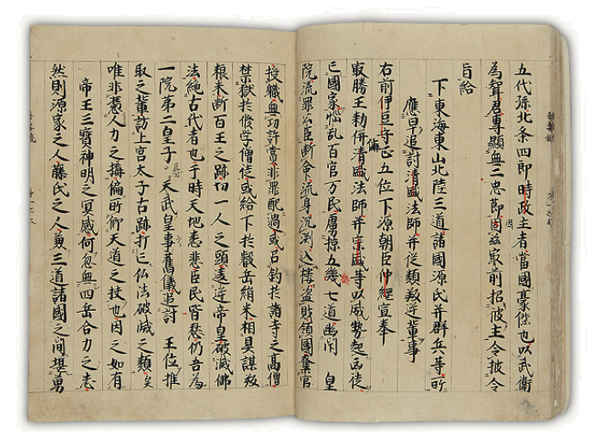 五代孫北条四郎時政主者當國豪傑也以武衛
為聟君專顯無二忠節因茲最前招彼主令披令
旨給
下東海東山北陸三道諸國源氏并群兵等所
應早追討清盛法師并従類叛逆輩事
右前伊豆守正五位下源朝臣仲綱宣奉
最勝王勅偁清盛法師并宗盛等以威勢起凶徒
亡國家惱乱百官万民虜掠五幾七道幽閇皇
院流罪公臣断命流身沉渕込樓盗財領國棄官
授職無功許賞非罪配過或召釣於諸寺之高僧
禁獄於修学僧徒或給下於叡岳絹米相具謀叛
粮米断百王之跡切一人之頭違逆帝皇破滅佛
法絶古代者也于時天地悉悲臣民皆愁仍吾為
一院第二皇子尋天武皇事舊儀追討王位推
取之輩訪上宮太子古跡打亡仏法破滅之類矣
唯非憑人力之搆偏所仰天道之扶也因之如有
帝王三寳神明之冥感何忽無四岳合力之志
然則源家之人藤氏之人兼三道諸國之間堪勇